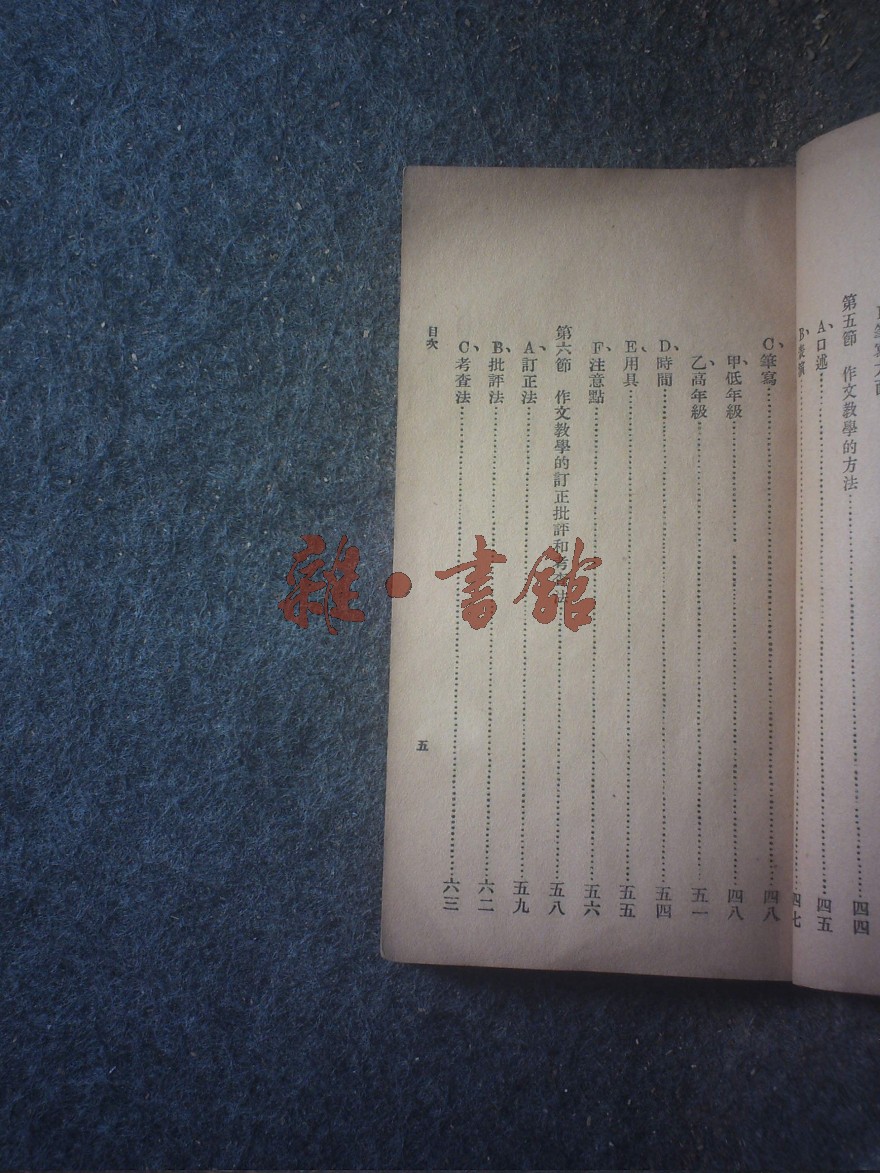 第五節　作文教學的方法……四四
A、口述……四五
B、表演……四七
C、筆寫……四八
甲、低年級……四八
乙、高年級……五一
D、時間……五四
E、用具……五五
F、注意點……五六
第六節　作文教學的訂正批評和考查法……五八
A、訂正法……五九
B、批評法……六二
C、考查法……六三
目次
五
雜・書館